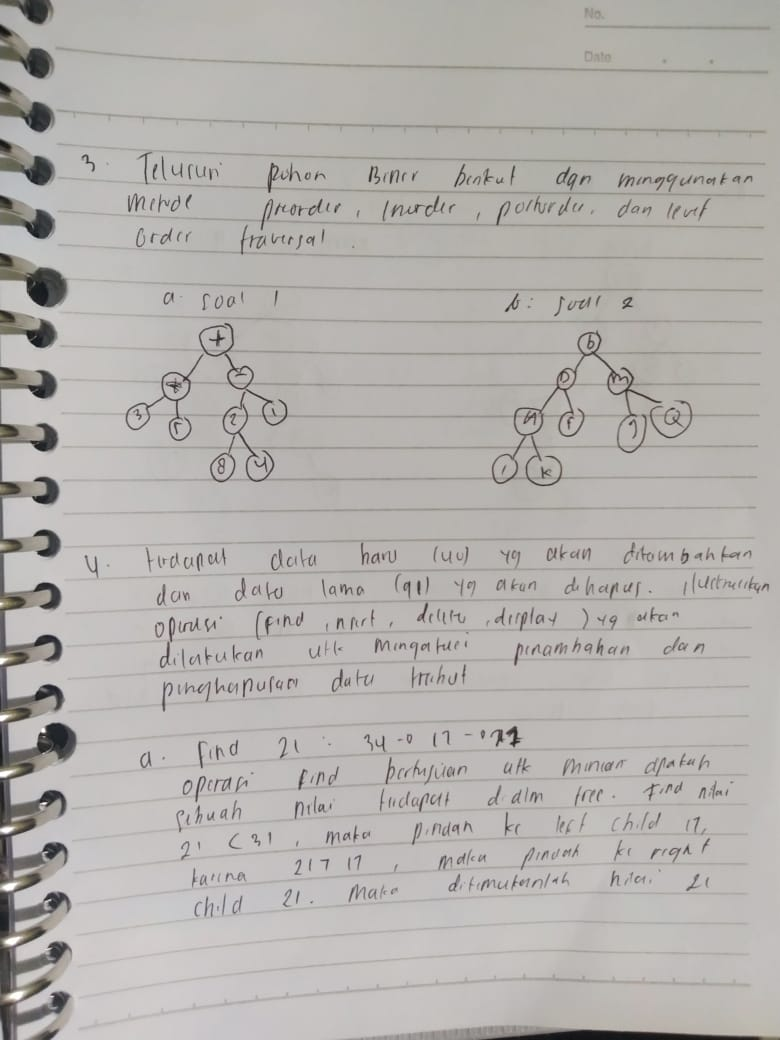 No.
Date
3. Telusuri pohon Biner berikut dgn menggunakan
metode preorder, Inorder, postorder, dan level
order traversal.
a. soal 1
b. soal 2
+ b
* D m
3 5 2 1 A F J Q
8 4 I K
4. terdapat data baru (40) yg akan ditambahkan
dan data lama (91) yg akan dihapus. Ilustrasikan
operasi (find, insert, delete, display) yg akan
dilakukan utk mengatasi penambahan dan
penghapusan data trsebut
a. Find 21 : 34 -o 17 -o 21
operasi find bertujuan utk mencari apakah
sebuah nilai terdapat didlm tree. Find nilai
21 < 31, maka pindah ke left child 17,
karena 21 > 17, maka pindah ke right
child 21. Maka ditemukanlah nilai 21